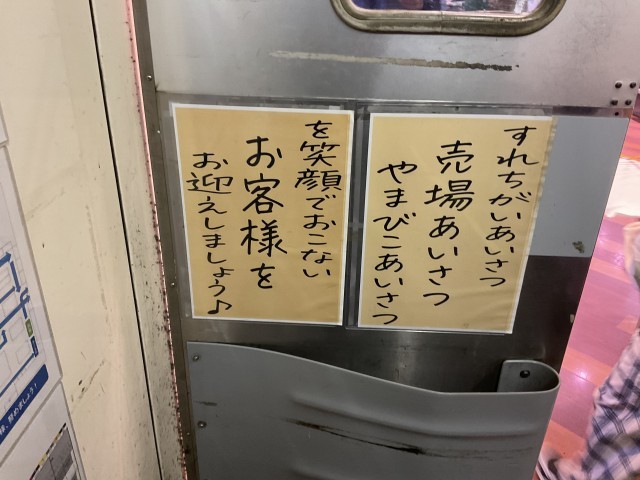 すれちがいあいさつ
売場あいさつ
やまびこあいさつ
を笑顔でおこない
お客様を
お迎えしましょう♪